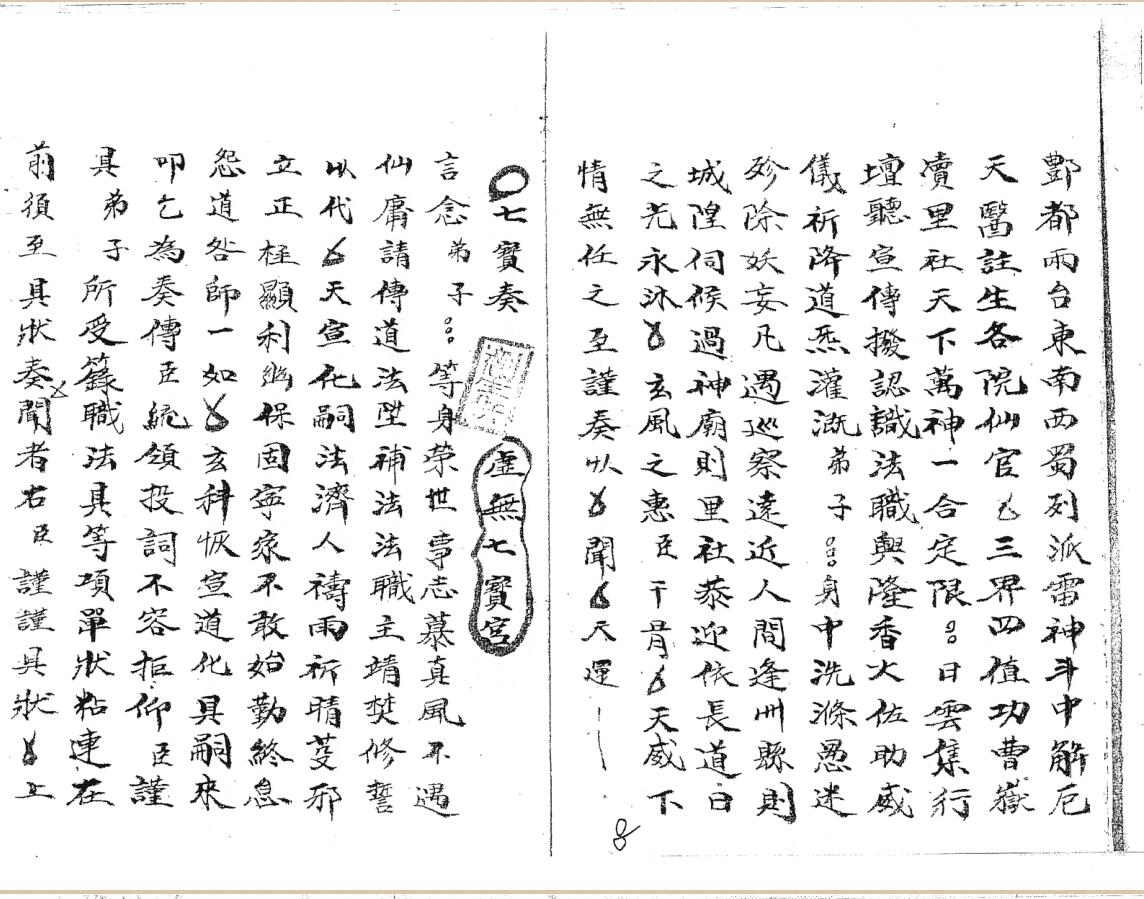 酆都兩台東南西蜀列派雷神斗中解厄
天醫註生各院仙官 三界四值功曹嶽
瀆里社天下萬神一合定限 日雲集行
壇聽宣傳撥認識法職興隆香火佐助威
儀祈降道炁灌溉弟子 身中洗滌愚迷
殄除妖妄凡遇巡察遠近人間逢州縣則
城隍伺候過神廟則里社恭迎依長道日
之光永沐 玄風之惠臣干冒 天威下
情無任之至謹奏以 聞 天運
8
七寶奏 虛無七寶宮
言念弟子 等身荣世事志慕真風不遇
仙庸請傳道法陞補法法職主靖焚修誓
以代 天宣化嗣法濟人禱雨祈晴芟邪
立正極顯利幽保固寧家不敢始勤終怠
怨道咎師一如 玄科恢宣道化具嗣來
叩乞為奏傳臣統領投詞不容拒仰臣謹
具弟子所受籙職法具等項單狀粘連在
前須至具狀奏聞者右臣謹謹具狀 上